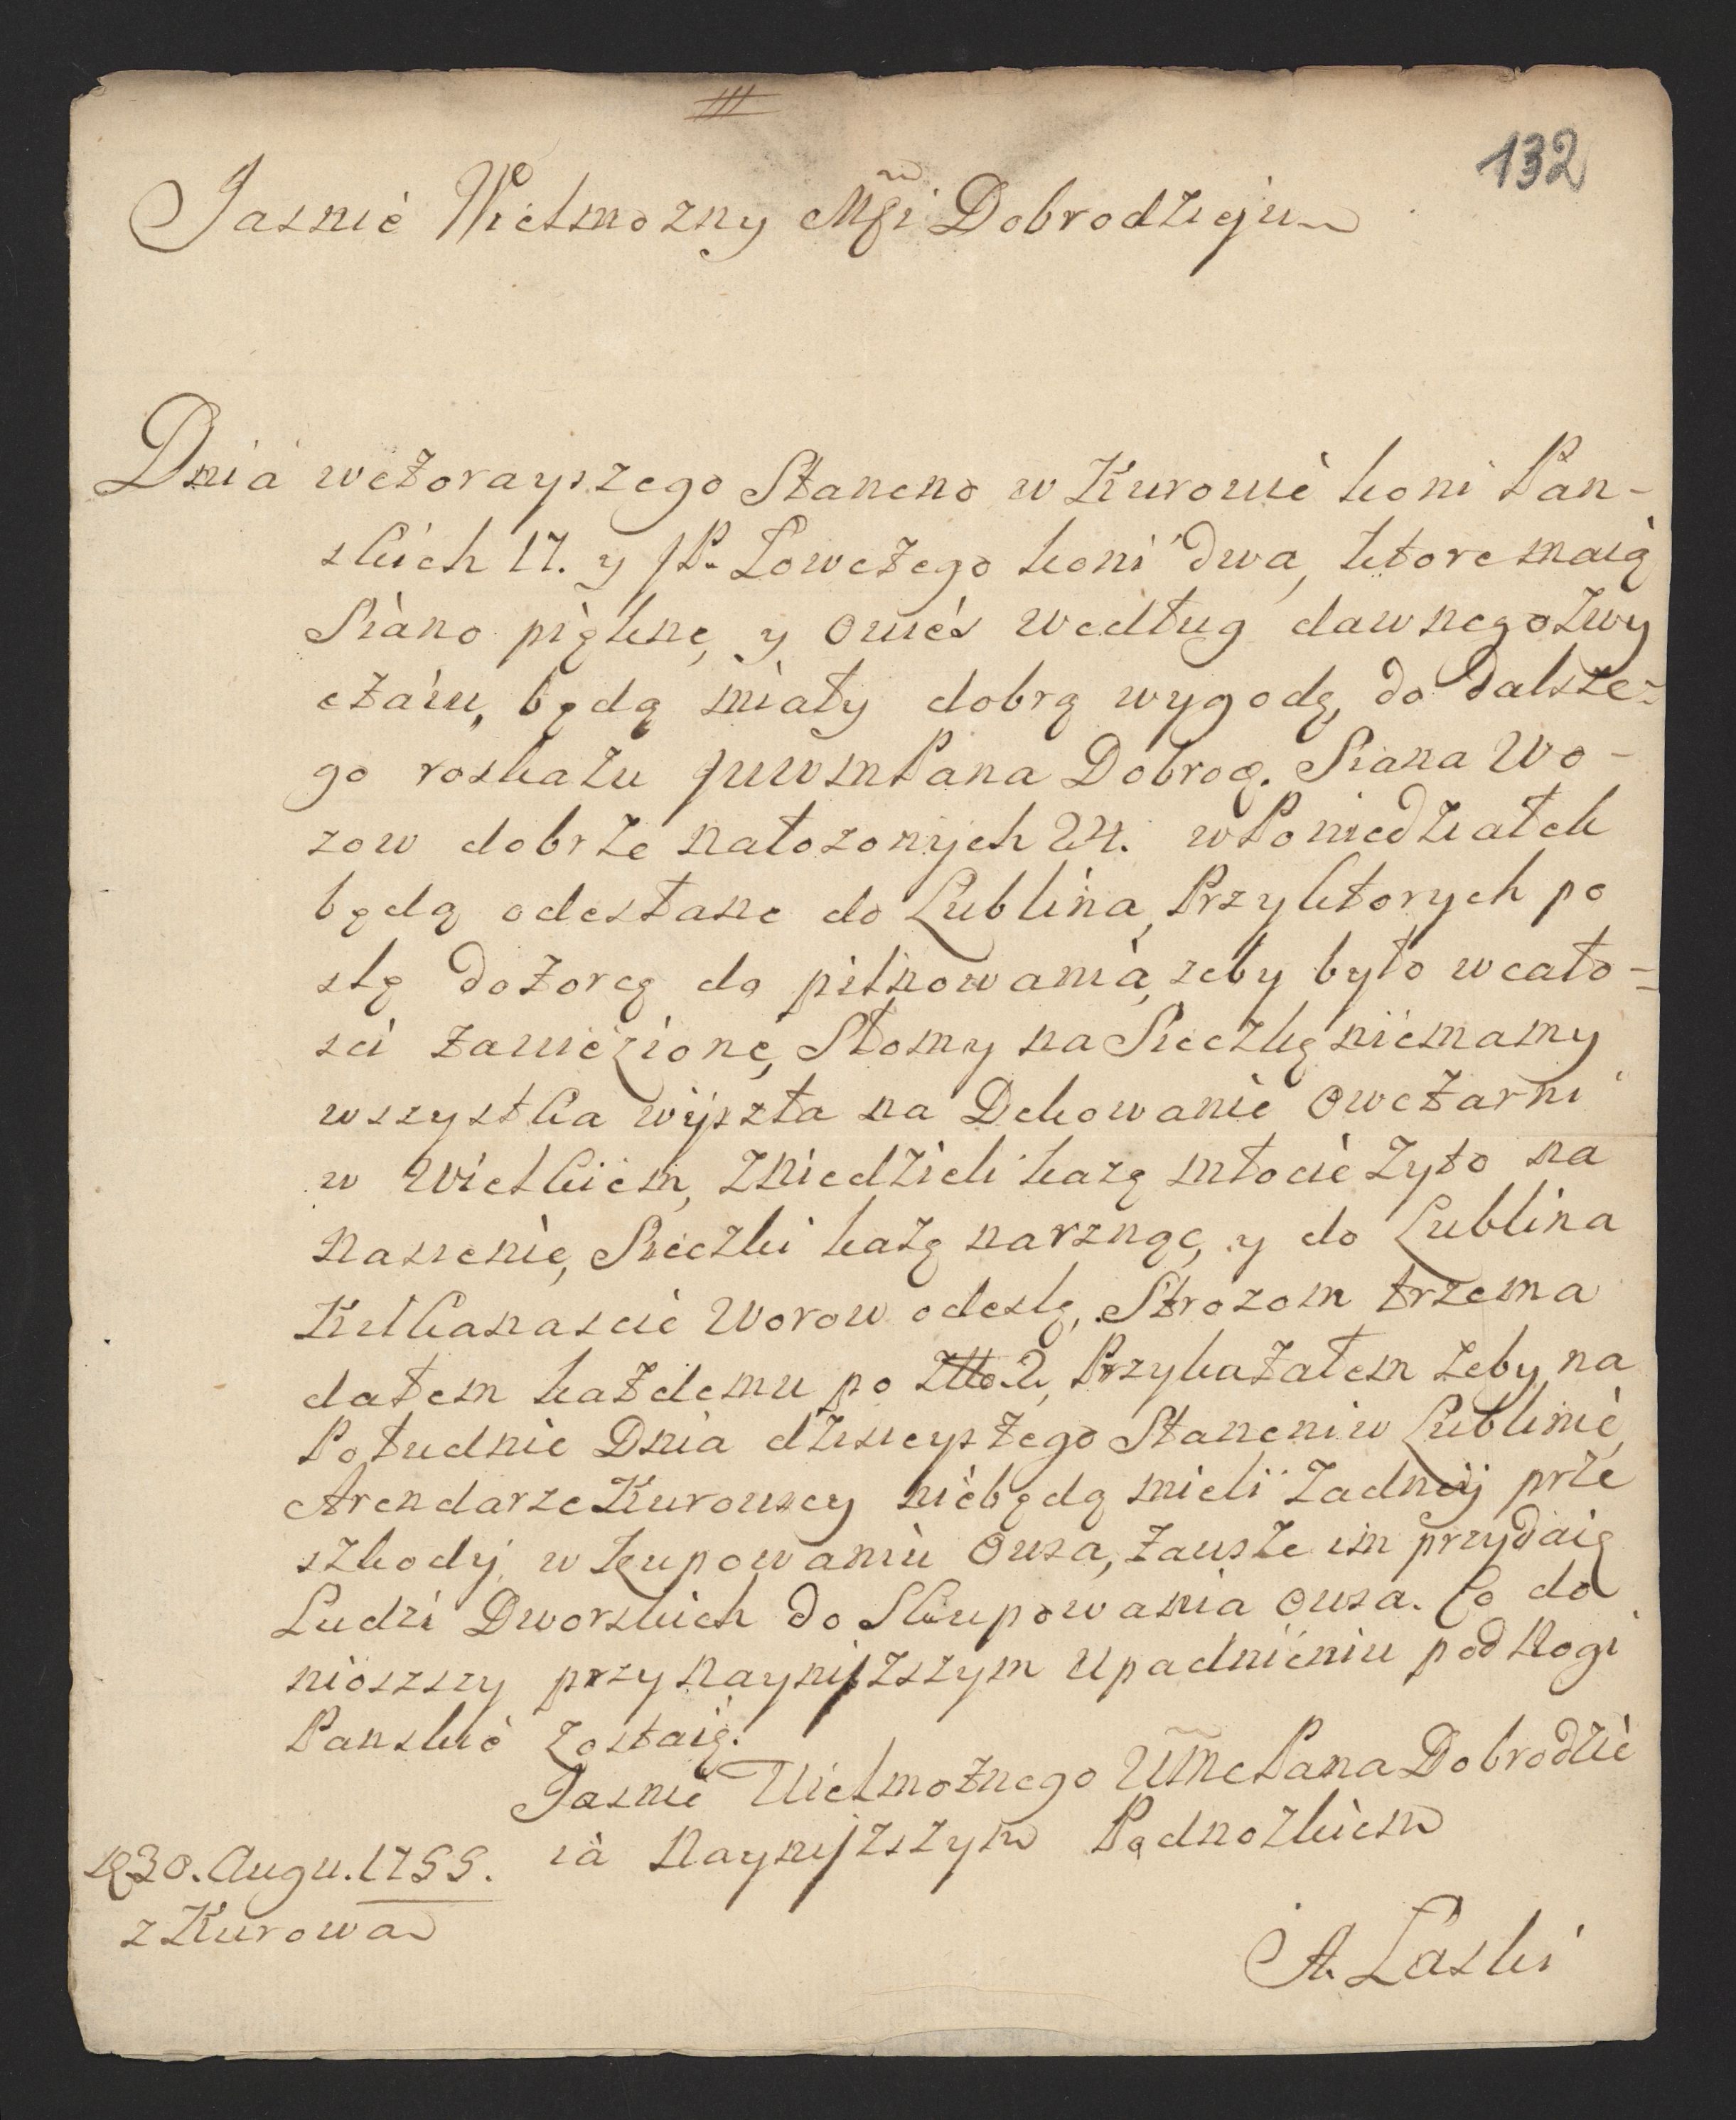 132
Jasnie Wielmozny Mgi Dobrodzieju
Dnia wczorayszego Staneno w Kurowie koni Pan-
skich 17. y JP. Łowczego koni dwa, ktore maią
Siano piękne, y owies według dawnego zwy
czaiu, będą miały dobrą wygodę, do dalsze-
go roskazu JWWmPana Dobrog. Siana Wo-
zow dobrze nałozonych 24. w Poniedziałek
będą odesłane do Lublina, Przy ktorych po
slę dozorcę do pilnowania, zeby było wcało-
sci zawiezione, Słomy na Sieczkę niemamy
wszystka wyszła na Dekowanie Owczarni
w Wielkiem, Zniedzieli kazę młocic Zyto na
nasienie, Sieczki kazę narznąc, y do Lublina
Kilkanascie Worow odeslę, Strozom trzema
dałem kazdemu po Zło. 2, Przykazałem zeby na
Południe Dnia dzisieyszego Staneni w Lublinie,
Arendarze Kurowscy niebędą mieli Zadney prze
szkody, w kupowaniu Owsa, zawsze im przydaię
Ludzi Dworskich do Skupowania owsa. Co do
nioszszy przy nayniższym Upadnieniu pod Nogi
Panskie zostaię.
Jasnie Wielmoznego WMcPana Dobrodzie
ia Nayniższym Podnozkiem
D 30. Augu. 1755.
z Kurowa
A. Laski